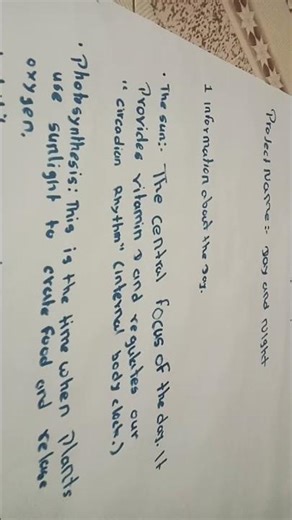 Project Name:- Day and Night
1 Information about the Day.
• The sun:- The central focus of the day. It
Provides vitamin D and regulates our
"circadian Rhythm" (internal body clock.)
• Photosynthesis: This is the time when plants
use sunlight to crate food and relase
oxygen.